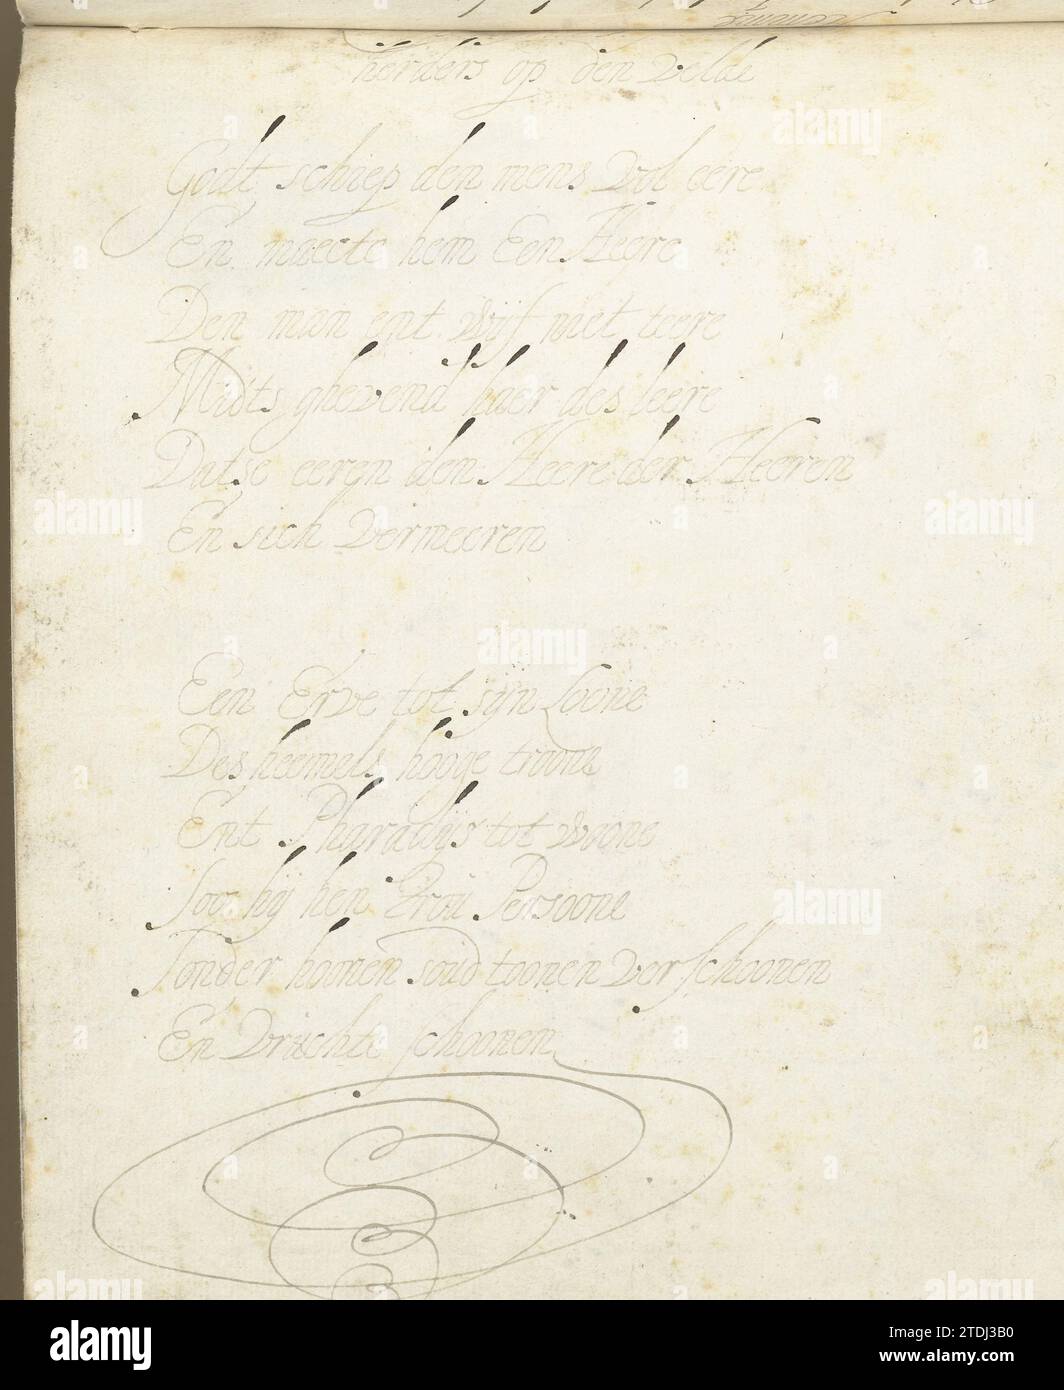 herders op den velde
Godt schiep den mens vol eere
En maecte hem Een Heere
Den man ent wijf met teere
Midts ghevend haer des leere
Datse eeren den Heere der Heeren
En sich vermeeren
Een Erve tot sijn Loone
Des heemels hooge troone
Ent Pharadijs tot woone
Soo hij hen Persoone
Sonder hoonen soud toonen verschoonen
En vruchte schoonen
alamy
Image ID: 2TDJ3B0
www.alamy.com